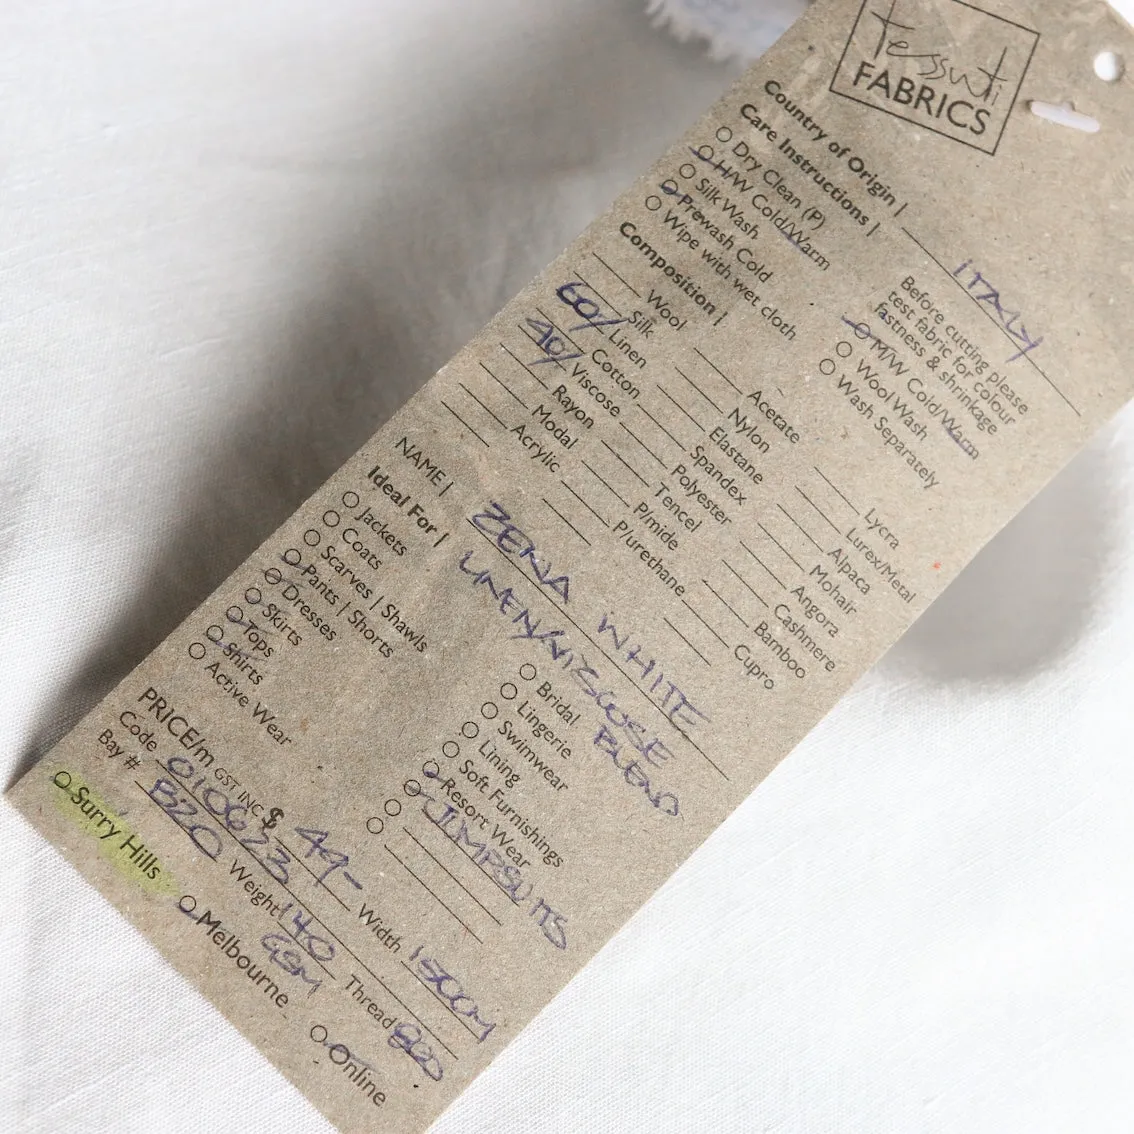 Tessuti
FABRICS
Country of Origin | ITALY
Care Instructions |
Dry Clean (P)
H/W Cold/Warm
Silk Wash
Prewash Cold
Wipe with wet cloth
Before cutting please
test fabric for colour
fastness & shrinkage
M/W Cold/Warm
Wool Wash
Wash Separately
Composition |
Wool
Silk
60/ Linen
Cotton
40/ Viscose
Rayon
Modal
Acrylic
Acetate
Nylon
Elastane
Spandex
Polyester
Tencel
P/mide
P/urethane
Lycra
Lurex/Metal
Alpaca
Mohair
Angora
Cashmere
Bamboo
Cupro
NAME | ZENA WHITE
LINEN/VISCOSE
BLEND
Ideal For |
Jackets
Coats
Scarves | Shawls
Pants | Shorts
Dresses
Skirts
Tops
Shirts
Active Wear
Bridal
Lingerie
Swimwear
Lining
Soft Furnishings
Resort Wear
JUMPSUITS
PRICE/m GST INC $ 49- Width 150CM
Code 010623 Weight 140 GSM Thread 820
Bay # B20
Surry Hills
Melbourne
Online